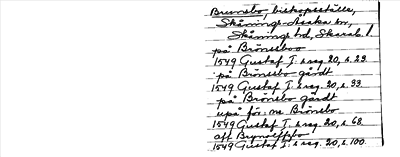 Brunsbo, biskopssäte,
Skånings-Åsaka sn,
Skånings hd, Skarab. l.
på Brönssboo
1549 Gustaf I:s reg. 20, s. 29.
på Brönsbo gårdt
1549 Gustaf I:s reg. 20, s. 33.
på Brönsbo gårdt
upå för:ne Brönsbo
1549 Gustaf I:s reg. 20, s. 68.
aff
1549 Gustaf I:s reg. 20, s. 100.